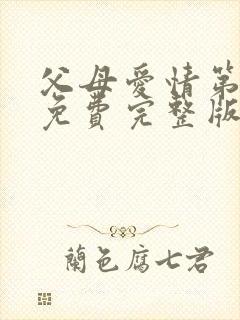 父母爱情第
免费完整版
兰色腐七君